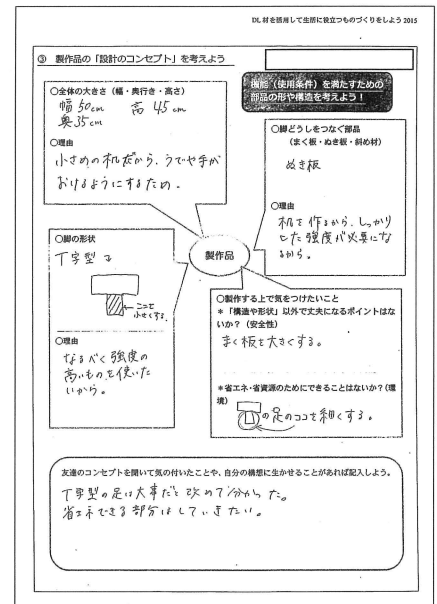 DL材を活用して生活に役立つものづくりをしよう 2015
③ 製作品の「設計のコンセプト」を考えよう
機能（使用条件）を満たすための
部品の形や構造を考えよう！
○全体の大きさ（幅・奥行き・高さ）
幅 50cm 高 45cm
奥 35cm
○理由
小さめの机だから、うでや手が
おけるようにするため。
○脚どうしをつなぐ部品
（まく板・ぬき板・斜め材）
ぬき板
○理由
机を作るから、しっかり
とした強度が必要にな
るから。
○脚の形状
T字型で
ここを
小さくする
○理由
なるべく強度の
高いものを使いた
いから。
製作品
○製作する上で気をつけたいこと
＊「構造や形状」以外で丈夫になるポイントはな
いか？（安全性）
まく板を大きくする。
＊省エネ・省資源のためにできることはないか？（環
境）
の足のココを細くする。
友達のコンセプトを聞いて気の付いたことや、自分の構想に生かせることがあれば記入しよう。
T字型の足は大事だと改めて分かった。
省エネできる部分はしていきたい。